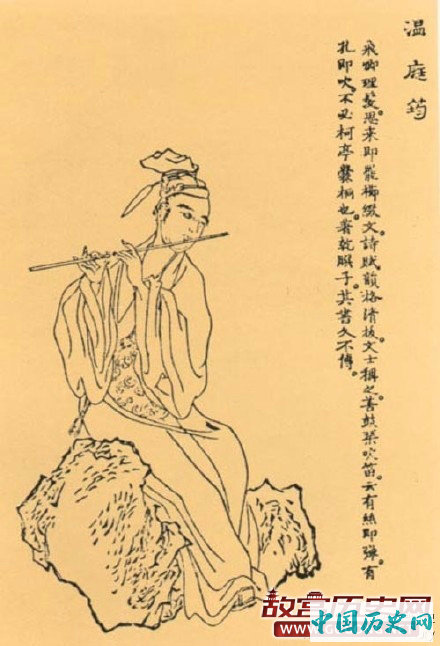 温庭筠
飛卿理髮。思来即罷櫛綴文。詩賦韻格清拔。文士稱之。善鼓琴吹笛。云有絲即彈。有
孔即吹。不必柯亭爨桐也。著乾𦠆子。其書久不傳。
故宫历史网
www.g
中国历史网